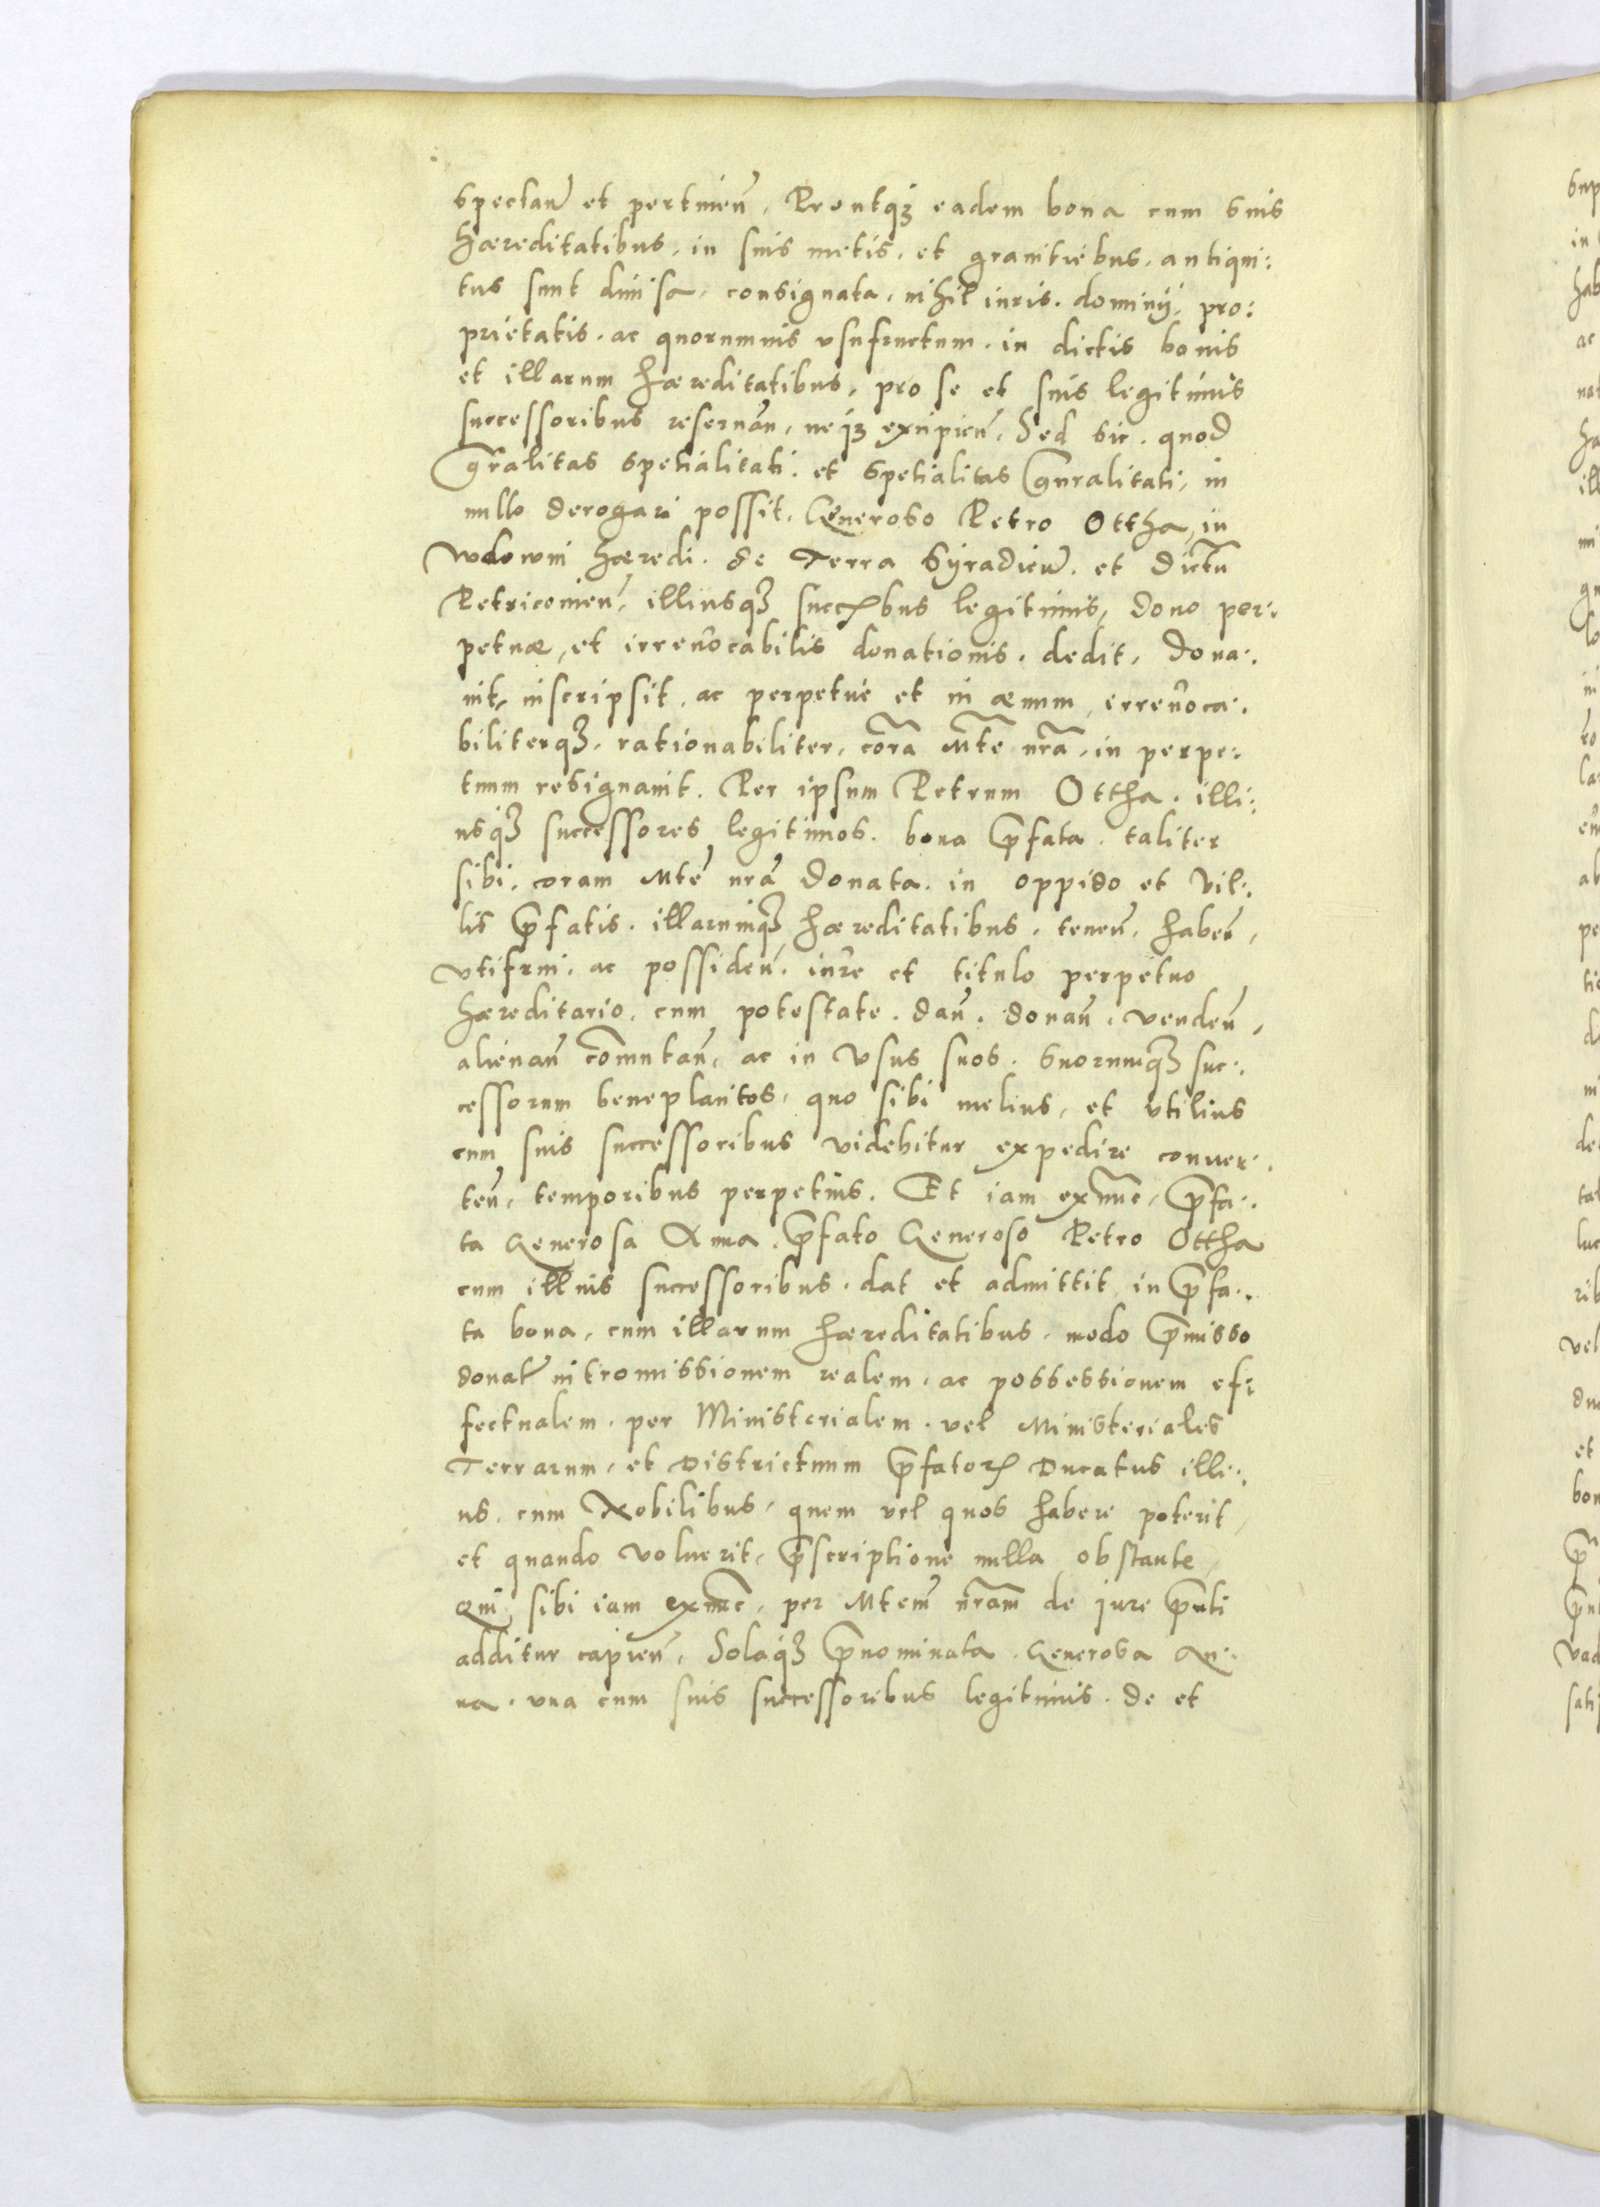 Spectan̄ et pertinen̄, Proutqꝫ eadem bona cum suis
hæreditatibus, in suis metis, et granitiebus, antiqui:
tus sunt diuisa, consignata, nihil iuris, dominij, pro:
prietatis, ac quorumuis vsufructum, in dictis bonis
et illarum hæreditatibus, pro se et suis legitimis
successoribus reseruan̄, neqꝫ excipien̄, Sed sic, quod
gn̄ralitas spetialitati, et spetialitas gn̄ralitati, in
nullo derogari possit, Generoso Petro Ottha, in
Wdowin hæredi, de Terra Syradien̄, et Districtu
Petricouien̄, illiusqꝫ succꝭbus legitimis, dono per:
petuæ, et irreuocabilis donationis, dedit, dona:
uit, inscripsit, ac perpetue et in æuum, irreuoca:
biliterqꝫ, rationabiliter, corā Mte nrā, in perpe:
tuum resignauit. Per ipsum Petrum Ottha, illi:
usqꝫ successores legitimos, bona p̄fata, taliter
sibi, coram Mtē nrā donata, in oppido et Vil:
lis p̄fatis, illarumqꝫ hæreditatibus, tenen̄, haben̄,
vtifrui, ac possiden̄, iure et titulo perpetuo
hæreditario, cum potestate, dan̄, donan̄, venden̄,
alienan̄ cōmutan̄, ac in Vsus suos, suorumqꝫ suc:
cessorum beneplacitos, quo sibi melius, et vtilius
cum suis successoribus videbitur expedire conuer:
ten̄, temporibus perpetuis. Et iam exnunc, p̄fa:
ta Generosa Anna, p̄fato Generoso Petro Ottha
cum illius successoribus, dat et admittit, in p̄fa:
ta bona, cum illarum hæreditatibus, modo p̄misso
donat̄ intromissionem realem, ac possessionem ef:
fectualem, per Ministerialem, vel Ministeriales
Terrarum, et Districtuum p̄fatorꝝ Ducatus illi:
us, cum Nobilibus, quem vel quos habere poterit,
et quando voluerit, p̄scriptione nulla obstante,
Qui, sibi iam exnunc, per Mtem̄ nrām de jure p̄nti
additur capien̄, Solaqꝫ p̄nominata, Generosa An:
na, vna cum suis successoribus legitimis, de et